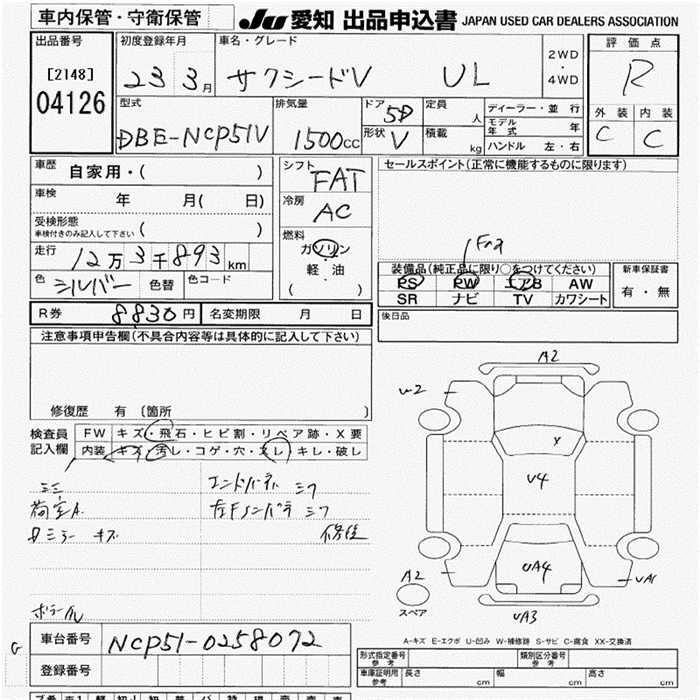 車内保管・守衛保管
JU 愛知 出品申込書 JAPAN USED CAR DEALERS ASSOCIATION
出品番号
[2148]
04126
初度登録年月
23 3月
車名・グレード
サクシードV UL
2WD
・
4WD
評価点
R
外装 内装
C C
型式
DBE-NCP51V
排気量
1500cc
ドア 5D
形状 V
定員 人
積載 kg
ディーラー・並行
モデル年式 年
ハンドル 左・右
車歴 自家用・( )
車検 年 月( 日)
受検形態
車検付きのみ記入して下さい ( )
走行 12万3千893km
色 シルバー 色替 色コード
シフト FAT
冷房 AC
燃料
ガソリン
軽・油
( ・ )
セールスポイント(正常に機能するものに限ります)
装備品(純正品に限り○をつけてください)
PS PW エアB AW
SR ナビ TV カワシート
新車保証書
有・無
R券 8830円 名変期限 月 日
後日品
注意事項申告欄(不具合内容等は具体的に記入して下さい)
修復歴 有〔箇所 〕
検査員記入欄
FW キズ・飛石・ヒビ割・リペア跡・X要
内装 キズ・汚レ・コゲ・穴・スレ・キレ・破レ
荷室A
エンドパネル
キズ
修復
A2
U4
UA4
UA1
A2
スペア
UA3
A-キズ E-エクボ U-凹み W-補修跡 S-サビ C-腐食 XX-交換済
車台番号 NCP51-0258072
登録番号
形式指定番号 参考
類別区分番号 参考
車庫証明用 参考 長さ cm 幅 cm 高さ cm